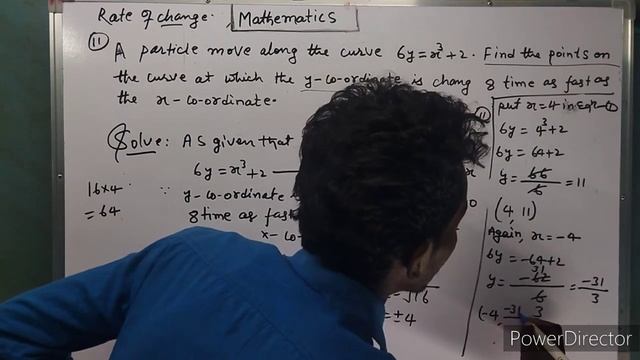 Rate of change.
Mathematics
(11) A particle move along the curve 6y = x³+2. Find the points on
the curve at which the y-co-ordinate is chang 8 time as fast as
the x-co-ordinate.
Solve: As given that
6y = x³+2
∵ y-co-ordinate
8 time as fast
x-co-
16×4
= 64
= ±4
put x=4 in Eqn-①
6y = 4³+2
6y = 64+2
y = 66/6 = 11
(4, 11)
Again, x = -4
6y = -64+2
y = -62/6 = -31/3
31
3
(-4, -31
PowerDirector